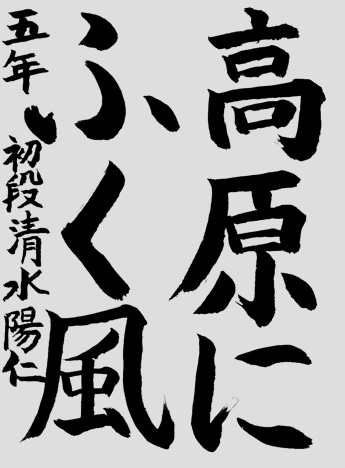 高原に
ふく風
五年 初段 清水陽仁